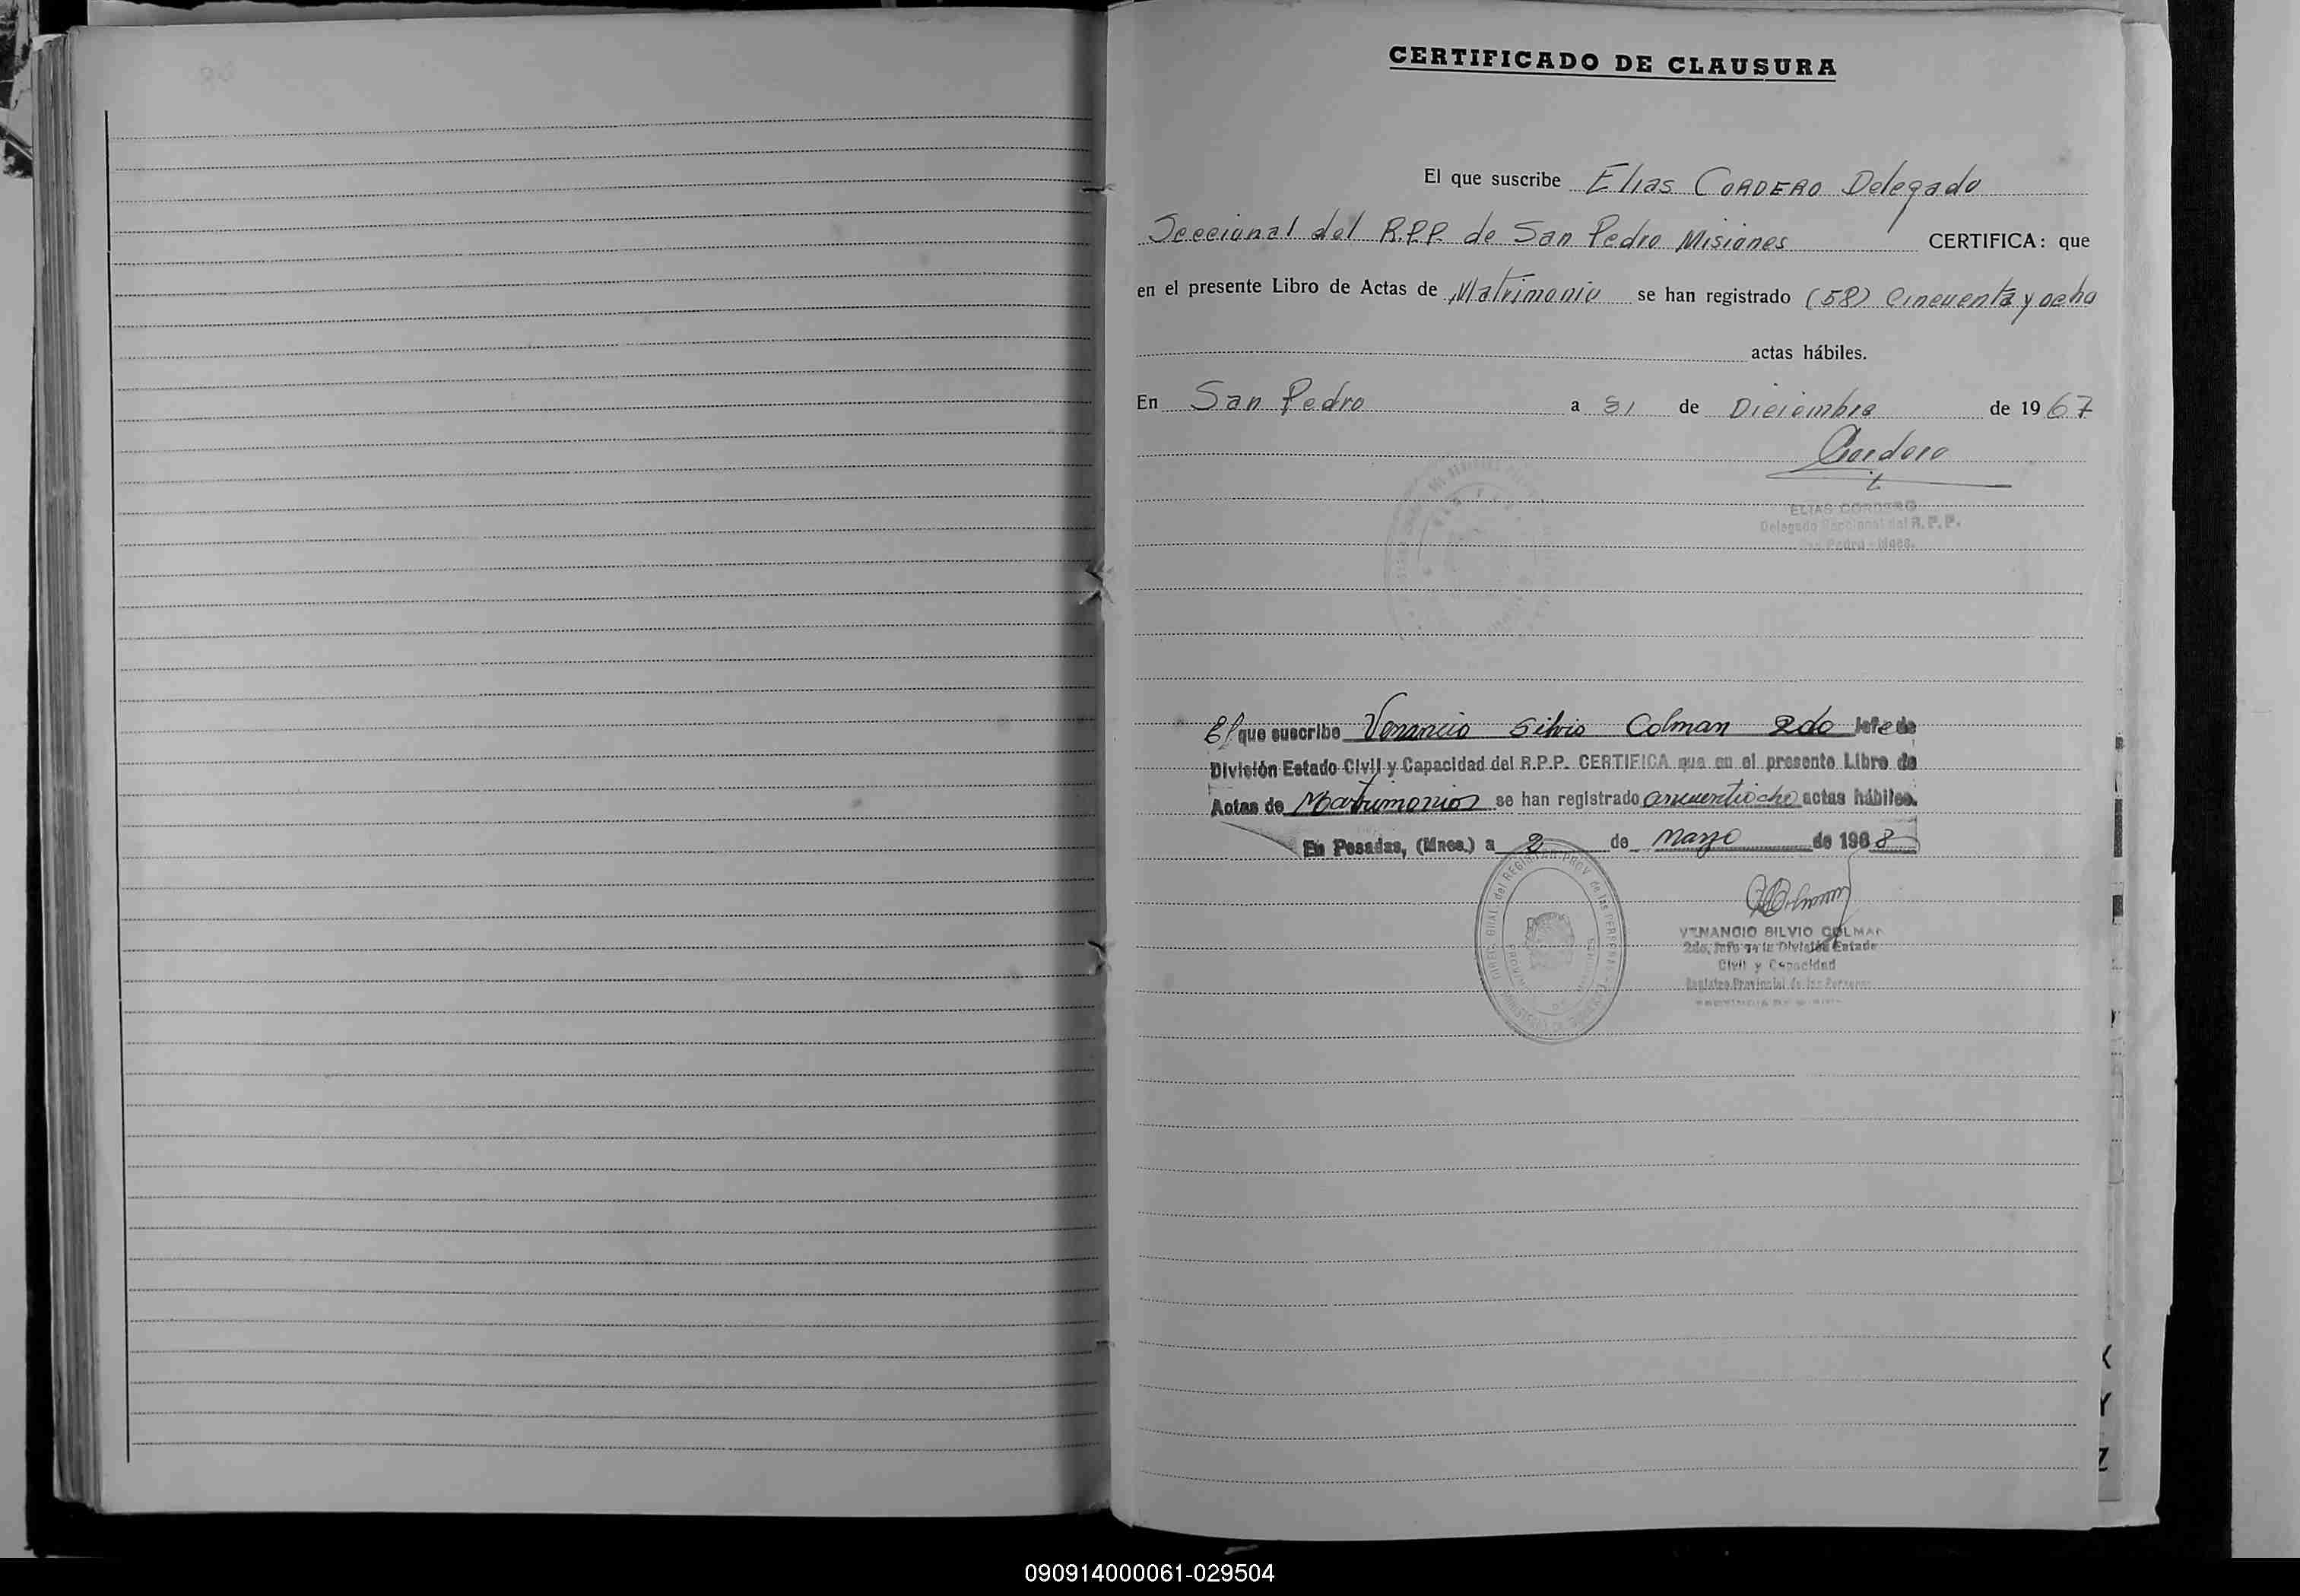 CERTIFICADO DE CLAUSURA
El que suscribe Elias CORDERO Delegado
Seccional del R.P.P. de San Pedro Misiones CERTIFICA: que
en el presente Libro de Actas de Matrimonio se han registrado (58) Cincuenta y ocho
actas hábiles.
En San Pedro a 31 de Diciembre de 1967
Cordero
ELIAS CORDERO
Delegado Seccional del R.P.P.
San Pedro - Mnes.
El que suscribe Venancio Silvio Colman 2do Jefe de
División Estado Civil y Capacidad del R.P.P. CERTIFICA que en el presente Libro de
Actas de Matrimonios se han registrado cincuentiocho actas hábiles.
En Posadas, (Mnes.) a 2 de Marzo de 1968
VENANCIO SILVIO COLMAN
2do. Jefe de la División Estado
Civil y Capacidad
Registro Provincial de las Personas
X
Y
Z
090914000061-029504